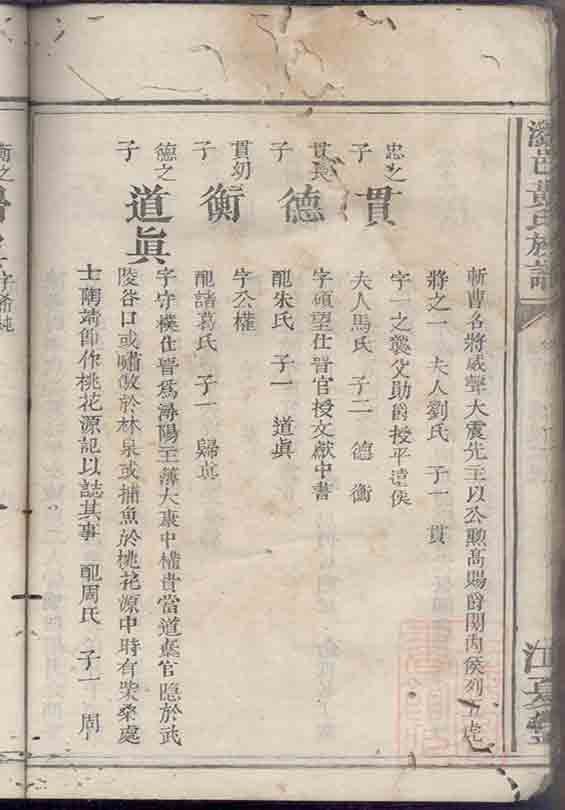 邑黃氏族譜
江夏堂
斬曹名將威聲大震先主以公勲高賜爵関内侯列五虎
將之一 夫人劉氏 子一 貫
忠之子 貫 字一之襲父勛爵授平遠侯
夫人馬氏 子二 德 衡
貫長子 德 字碩望仕晉官授文獻中書
配朱氏 子一 道眞
貫幼子 衡 字公權
配諸葛氏 子一 歸真
德之子 道眞 字守樸仕晉爲潯陽主薄大康中權貴當道棄官隐於武
陵谷口或嘯傲於林泉或捕魚於桃花源中時有柴桑處
士陶靖節作桃花源記以誌其事 配周氏 子一 周
衡之 字希純